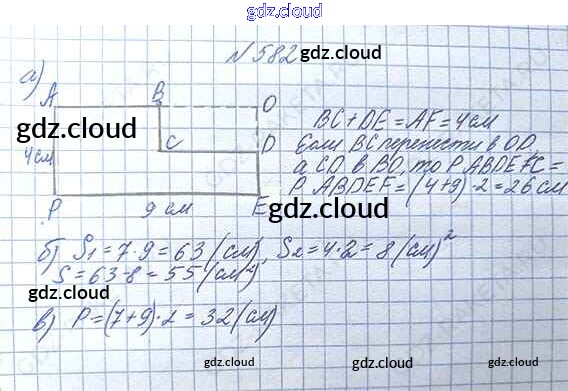 gdz.cloud
№582
gdz.cloud
а)
A B O
gdz.cloud
C D
4 см
P 9 см E
BC + DE = AF = 4 см
Если BC перенести в OD,
а CD в BO, то P ABDEFC =
P ABDEF = (4+9)·2 = 26 см
gdz.cloud
gdz.cloud
б) S₁ = 7·9 = 63 (см), S₂ = 4·2 = 8 (см)²
S = 63-8 = 55 (см²)
gdz.cloud
в) P = (7+9)·2 = 32 (см)
gdz.cloud gdz.cloud